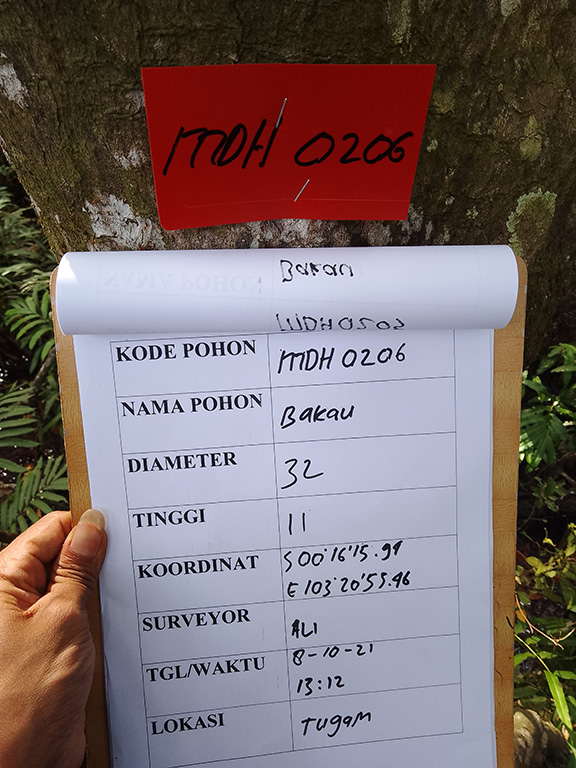 MDH 0206
Bakau
KODE POHON MDH 0206
NAMA POHON Bakau
DIAMETER 32
TINGGI 11
KOORDINAT S 00°16'15.91
E 103°20'55.46
SURVEYOR ALI
TGL/WAKTU 8-10-21
13:12
LOKASI TUGAM